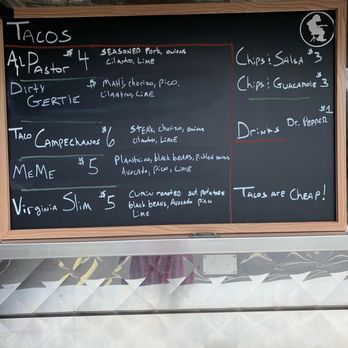 TACOS
Al Pastor $4 SEASONED Pork, onions
cilantro, Lime
Dirty Gertie $ Mahi, chorizo, Pico,
Cilantro, Lime
Taco Campechanos $6 Steak, chorizo, onions
cilantro, Lime
MeMe $5 Plantains, black beans, pickled onions
Avocado, Pico, Lime
Virginia Slim $5 Cumin roasted swt. potatoes
black beans, Avocado Pico
Lime
Chips & Salsa $3
Chips & Guacamole $3
Drinks $1
Dr. Pepper
Tacos are Cheap!